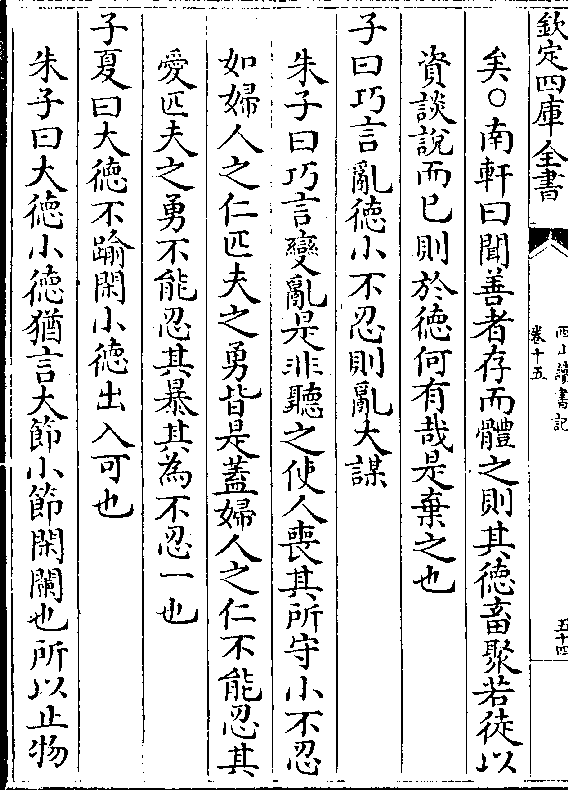 欽定四庫全書
西山讀書記
卷十五
五十四
矣○南軒曰聞善者存而體之則其徳畜聚若徒以
資談說而已則於徳何有哉是棄之也
子曰巧言亂徳小不忍則亂大謀
朱子曰巧言變亂是非聽之使人喪其所守小不忍
如婦人之仁匹夫之勇皆是蓋婦人之仁不能忍其
愛匹夫之勇不能忍其暴其為不忍一也
子夏曰大徳不踰閑小徳出入可也
朱子曰大徳小徳猶言大節小節閑闌也所以止物